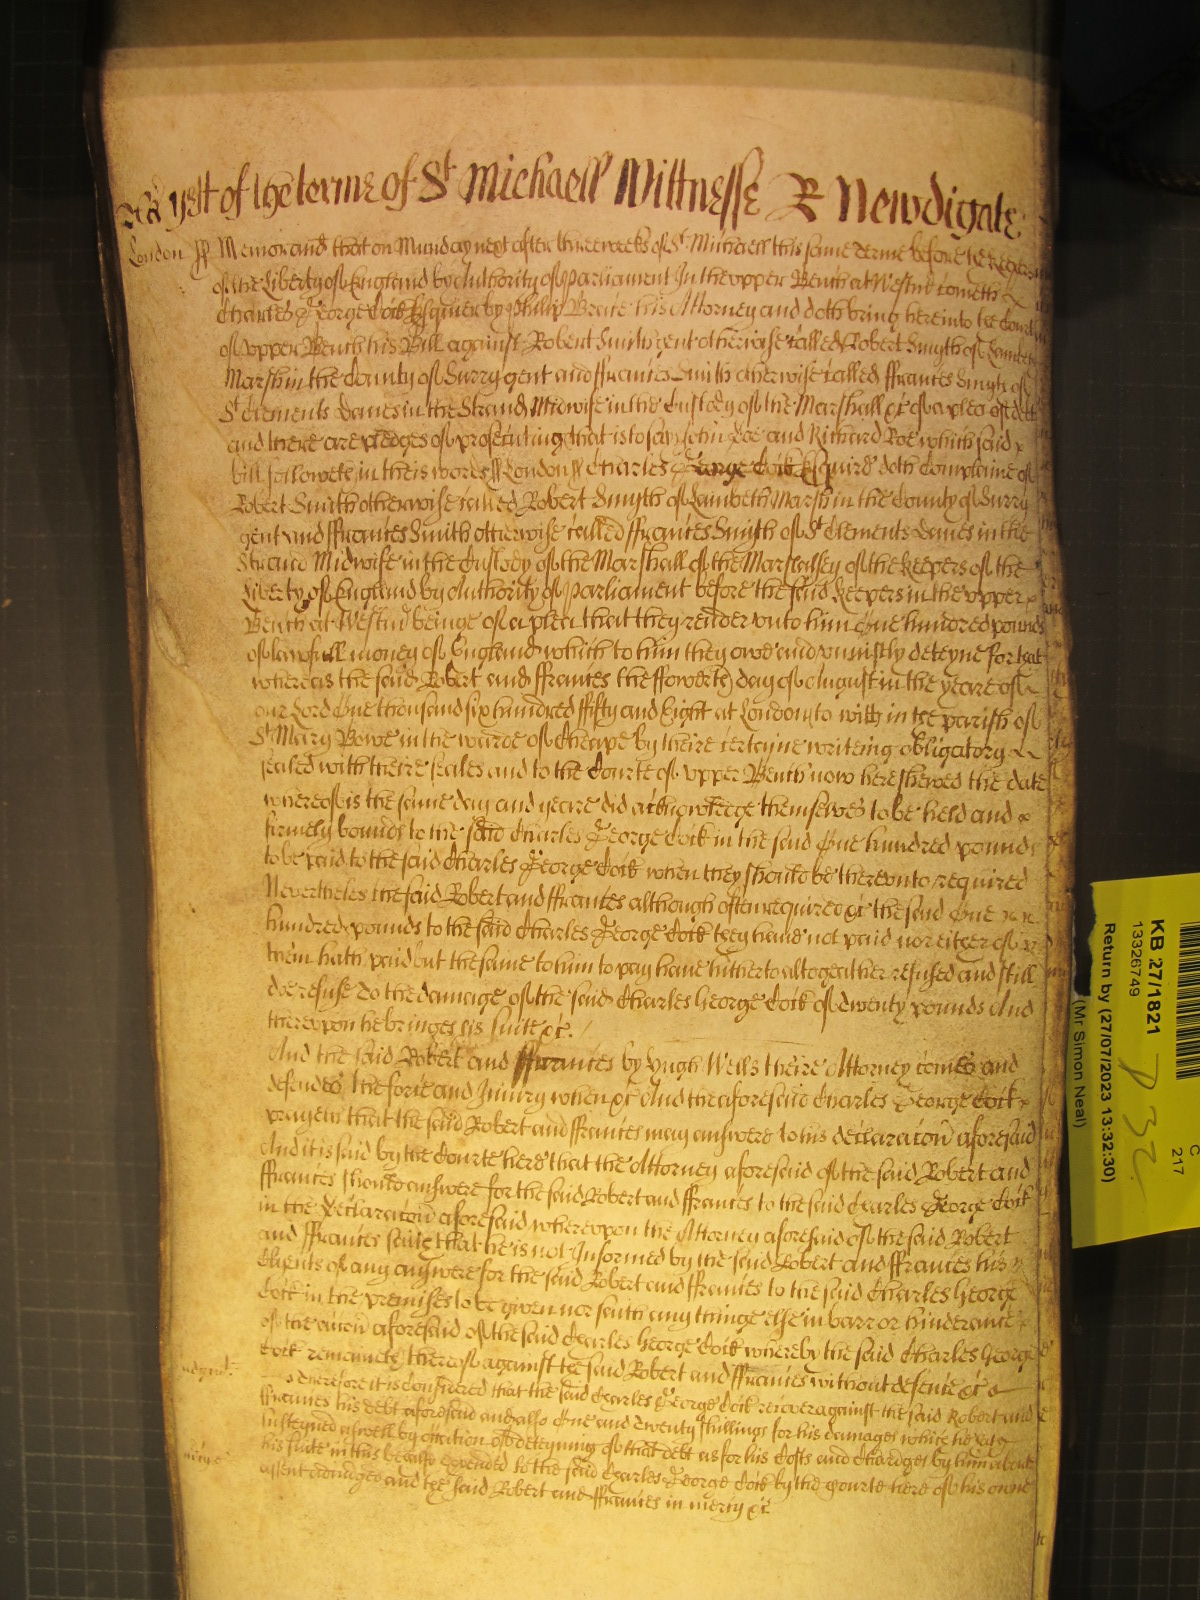 yett of the terme of St Michaell Wittnesse R Newdigate
London ss Memorand that on Munday next after three weeks of St Michaell this same Terme before the keepers
of the Liberty of England by Authority of Parliament In the upper Bench at Westm cometh
Charles George Cock Esquier by Phillip Brace his Attorney and doth bring here into the Court
of upper Bench his Bill against Robert Smith gent otherwise called Robert Smyth of Lambeth
Marsh in the County of Surry gent and ffrances Smith otherwise called ffrances Smyth of
St Clements Danes in the Strand Midwife in the Custody of the Marshall &c of a plea of debt
and there are pledges of prosecuting that is to say John Doe and Richard Roe which said
bill followeth in theis words ss London ss Charles George Cock Esquire doth Complaine of
Robert Smith otherwise called Robert Smyth of Lambeth Marsh in the County of Surry
gent and ffrances Smith otherwise called ffrances Smyth of St Clements Danes in the
Strand Midwife in the Custody of the Marshall of the Marshalsey of the keepers of the
Liberty of England by Authority of Parliament before the said keepers in the upper
Bench at Westm beinge of a plea that they render unto him One hundred pounds
of lawfull money of England which to him they owe and uniustly deteyne for that
whereas the said Robert and ffrances the ffowerth day of August in the yeare of
our Lord One thousand six hundred ffifty and Eight at London to witt in the parish of
St Mary Bowe in the warde of Cheape by theire certayne writeing obligatory
sealed with theire seales and to the Courte of upper Bench now here shewed the date
whereof is the same day and yeare did acknowledge themselves to be held and
firmely bound to the said Charles George Cock in the said One hundred pounds
to be paid to the said Charles George Cock when they should be thereunto required
Nevertheles the said Robert and ffrances although often required &c the said One
hundred pounds to the said Charles George Cock they have not paid nor either of
them hath paid but the same to him to pay have hitherto altogeather refused and still
doe refuse to the damage of the said Charles George Cock of twenty pounds And
thereupon he bringes his suite &c
And the said Robert and ffrances by Hugh Wells theire Attorney comes and
defendes the force and Iniury when &c And the aforesaid Charles George Cock
prayeth that the said Robert and ffrances may answere to his declaracon aforesaid
And it is said by the Courte here that the Attorney aforesaid of the said Robert and
ffrances should answere for the said Robert and ffrances to the said Charles George Cock
in the Declaracon aforesaid whereupon the Attorney aforesaid of the said Robert
and ffrances saith that he is not Informed by the said Robert and ffrances his
Clyents of any answere for the said Robert and ffrances to the said Charles George
Cock in the premises to be given nor saith any thinge else in barr or hinderance
of the accon aforesaid of the said Charles George Cock whereby the said Charles George
Cock remaineth thereof against the said Robert and ffrances without defence &c
Therefore it is considered that the said Charles George Cock recover against the said Robert and
ffrances his debt aforesaid and also One and twenty shillings for his damages which he hath
susteyned aswell by occasion of deteyning of that debt as for his Costs and Chardges by him about
his suite in this behalfe expended to the said Charles George Cock by the Courte here of his owne
assent adiudged and the said Robert and ffrances in mercy &c
KB 27/1821
13326749
Return by (27/07/2023 13:32:30)
(Mr Simon Neal)
C
217